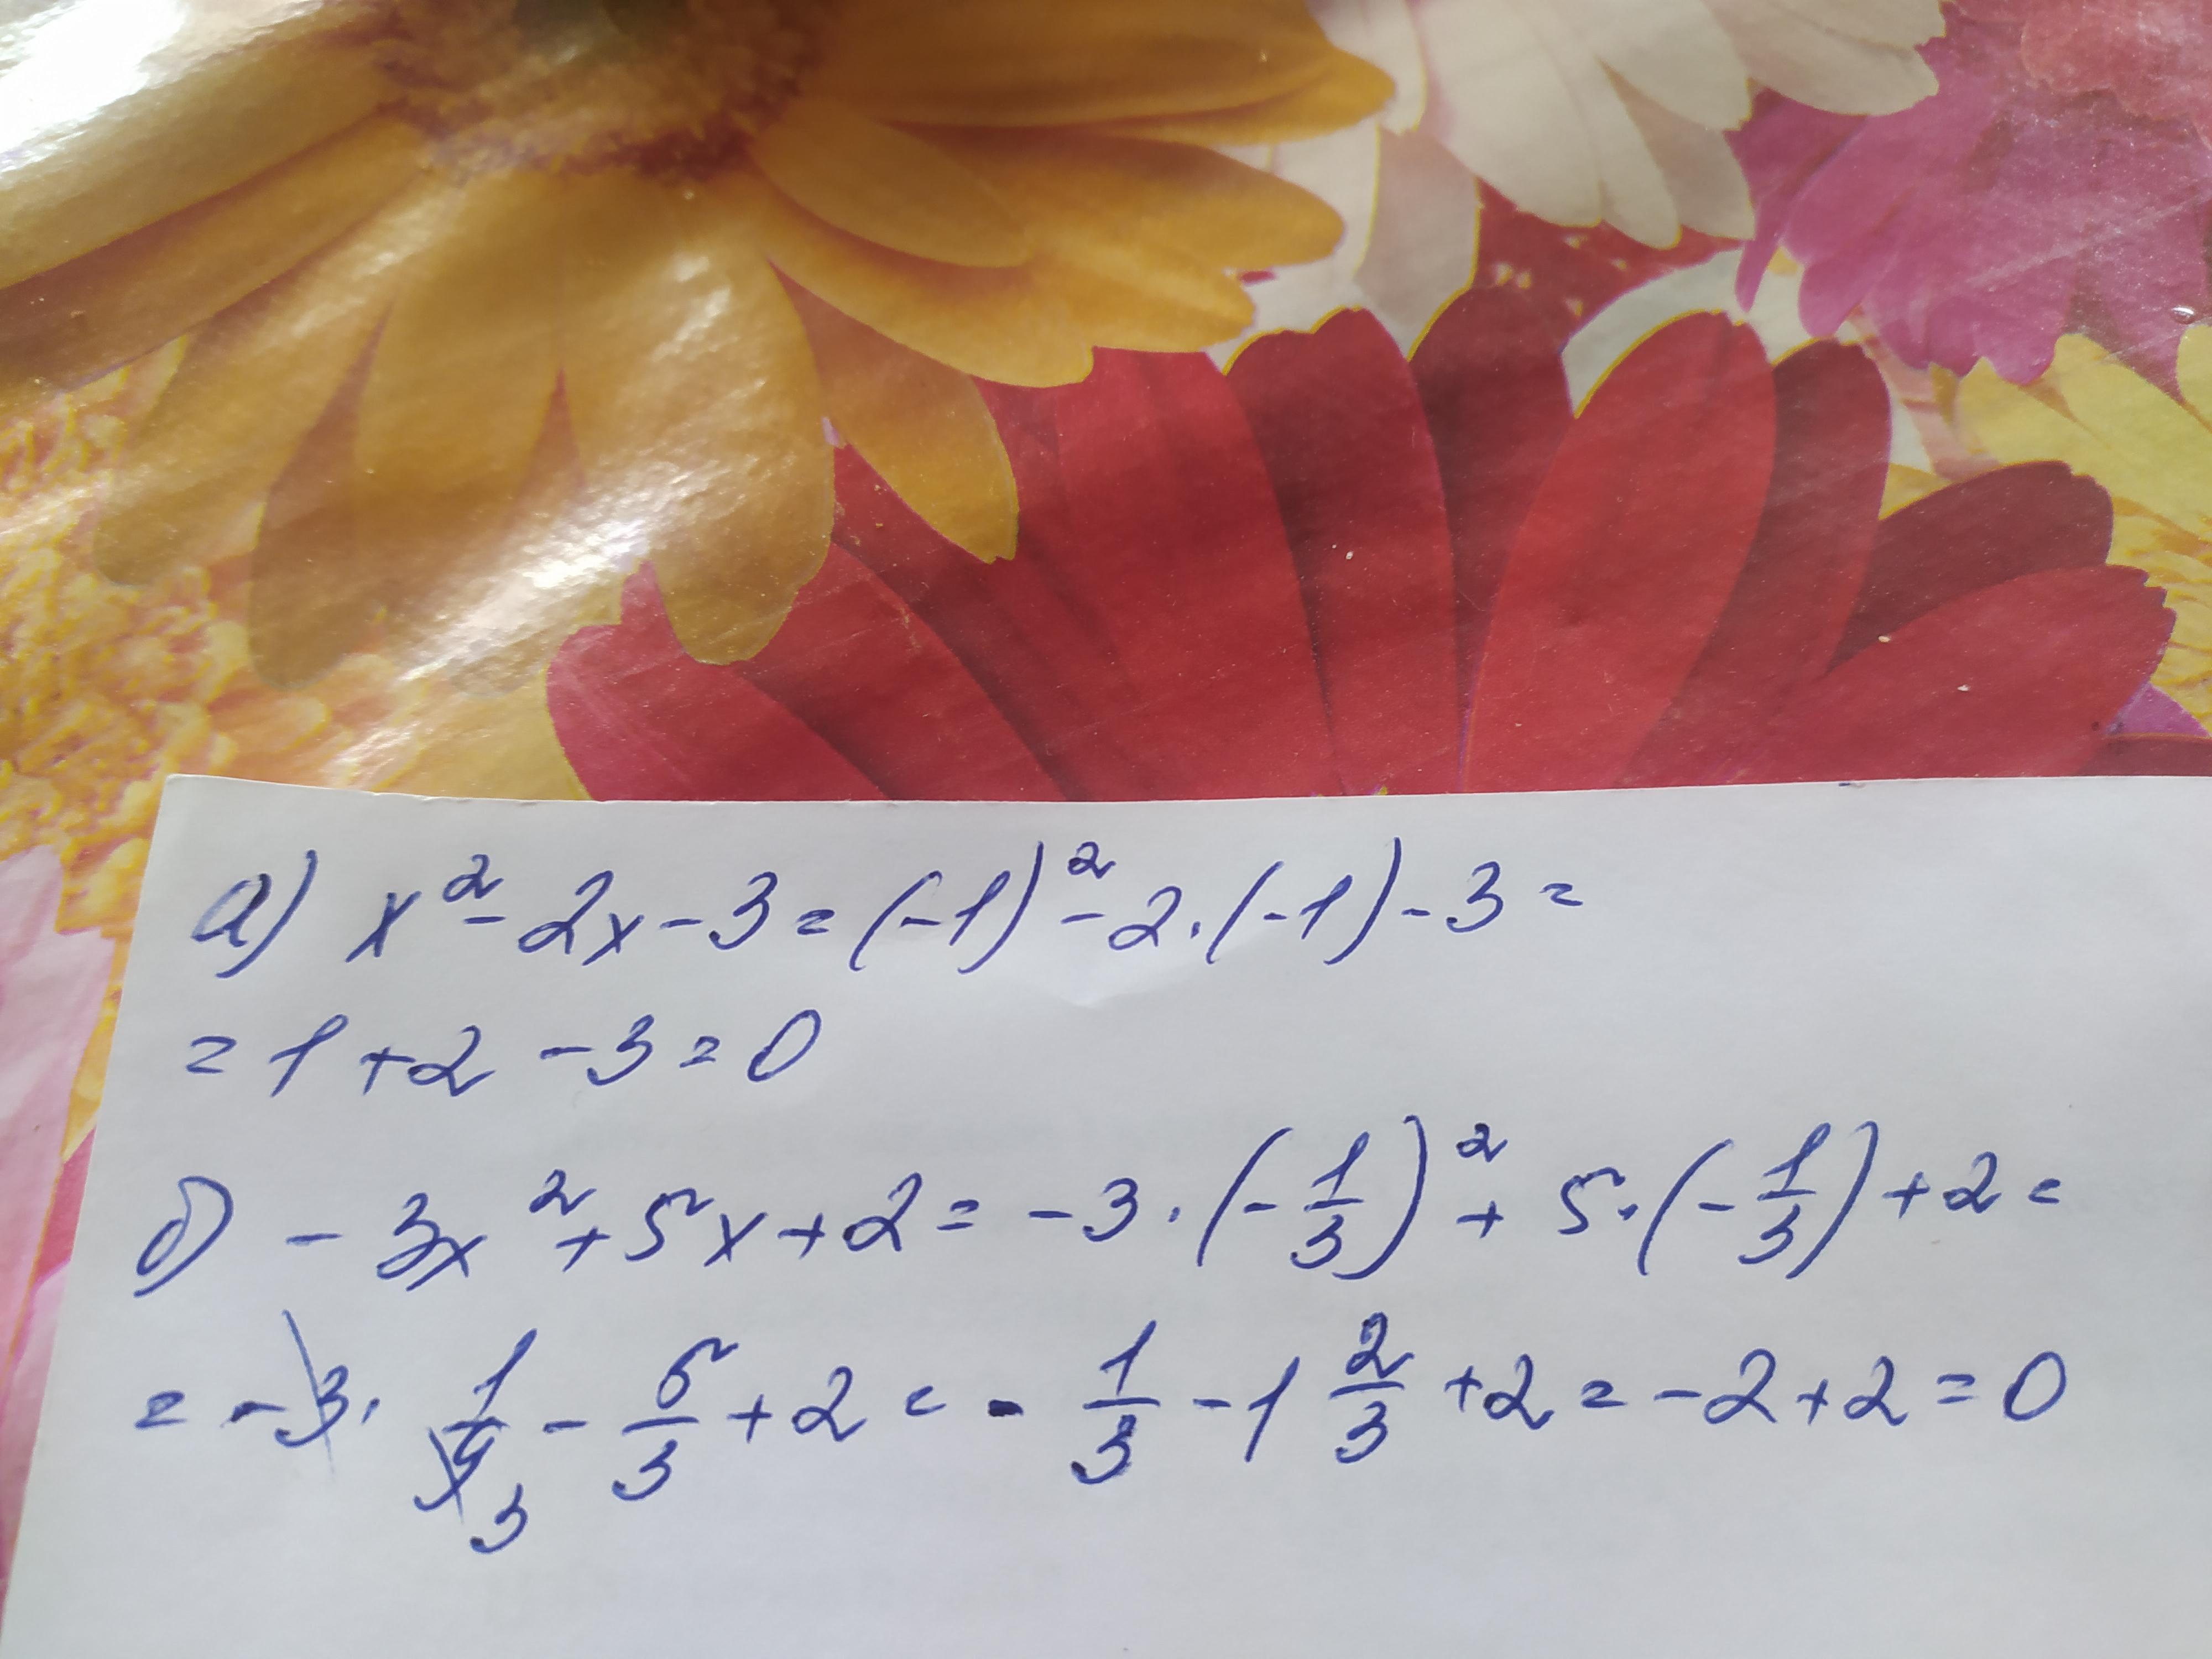 а) x² - 2x - 3 = (-1)² - 2·(-1) - 3 =
= 1 + 2 - 3 = 0
б) - 3x² + 5x + 2 = - 3·(- 1/3)² + 5·(- 1/3) + 2 =
= - 3· 1/9 3 - 5/3 + 2 = - 1/3 - 1 2/3 + 2 = - 2 + 2 = 0